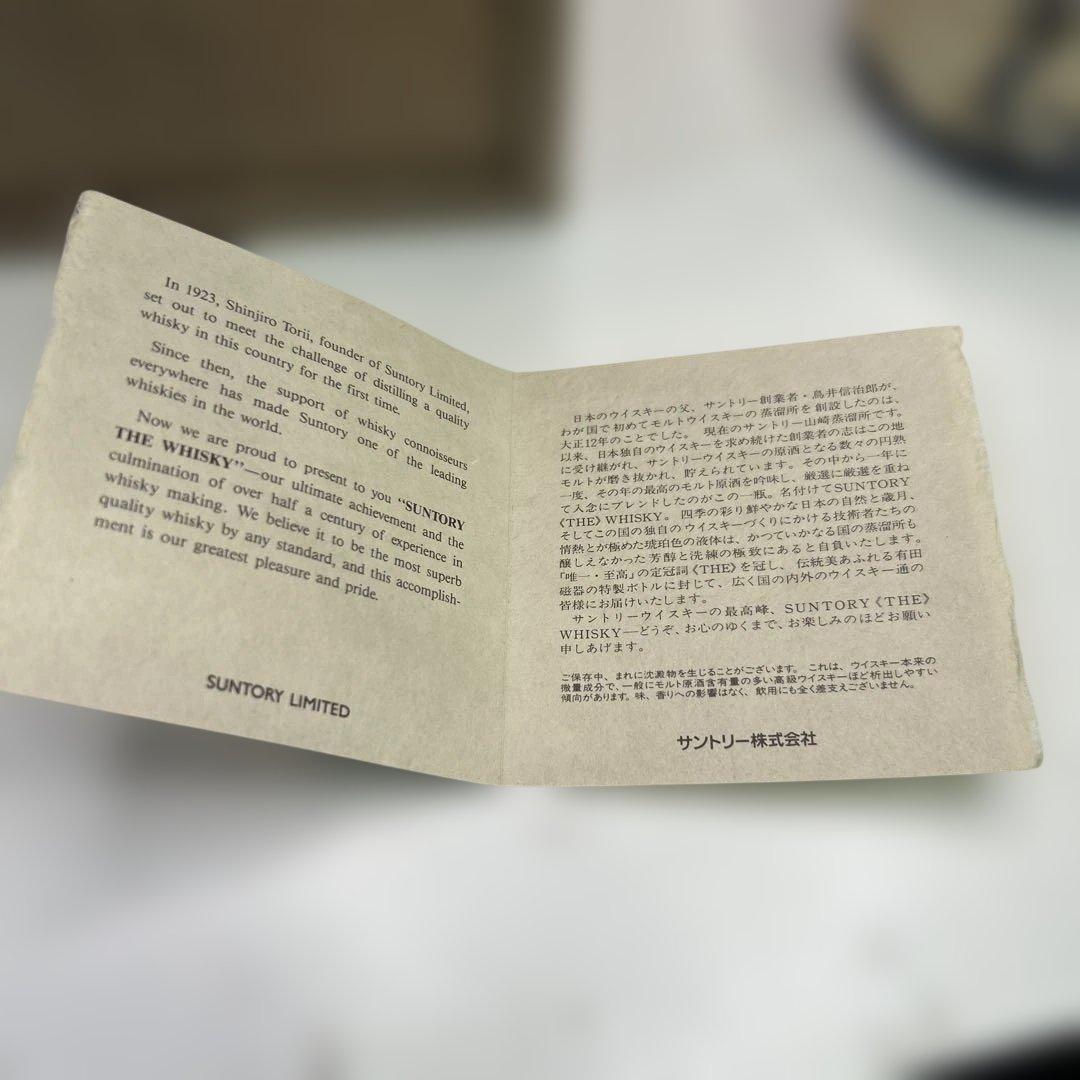 In 1923, Shinjiro Torii, founder of Suntory Limited,
set out to meet the challenge of distilling a quality
whisky in this country for the first time.
Since then, the support of whisky connoisseurs
everywhere has made Suntory one of the leading
whiskies in the world.
Now we are proud to present to you “SUNTORY
THE WHISKY”—our ultimate achievement and the
culmination of over half a century of experience in
whisky making. We believe it to be the most superb
quality whisky by any standard, and this accomplish-
ment is our greatest pleasure and pride.
SUNTORY LIMITED
日本のウイスキーの父、サントリー創業者・鳥井信治郎が、
わが国で初めてモルトウイスキーの蒸溜所を創設したのは、
大正12年のことでした。現在のサントリー山崎蒸溜所です。
以来、日本独自のウイスキーを求め続けた創業者の志はこの地
に受け継がれ、サントリーウイスキーの原酒となる数々の円熟
モルトが磨き抜かれ、貯えられています。その中から一年に
一度、その年の最高のモルト原酒を吟味し、厳選に厳選を重ね
て入念にブレンドしたのがこの一瓶。名付けてSUNTORY
《THE》WHISKY。四季の彩り鮮やかな日本の自然と歳月、
そしてこの国の独自のウイスキーづくりにかける技術者たちの
情熱とが極めた琥珀色の液体は、かつていかなる国の蒸溜所も
醸しえなかった芳醇と洗練の極致にあると自負いたします。
「唯一・至高」の定冠詞《THE》を冠し、伝統美あふれる有田
磁器の特製ボトルに封じて、広く国の内外のウイスキー通の
皆様にお届けいたします。
サントリーウイスキーの最高峰、SUNTORY《THE》
WHISKY―どうぞ、お心のゆくまで、お楽しみのほどお願い
申しあげます。
ご保存中、まれに沈澱物を生じることがございます。これは、ウイスキー本来の
微量成分で、一般にモルト原酒含有量の多い高級ウイスキーほど析出しやすい
傾向があります。味、香りへの影響はなく、飲用にも全く差支えございません。
サントリー株式会社